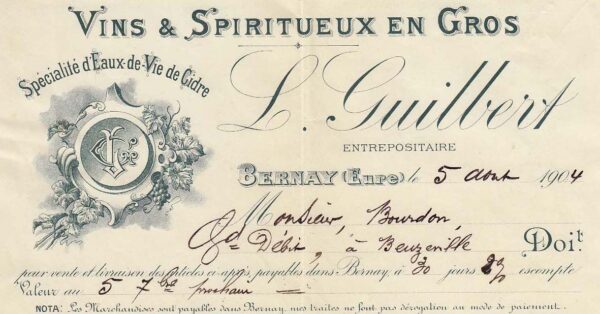 VINS & SPIRITUEUX EN GROS
Spécialité d'Eaux-de-Vie de Cidre
L. Guilbert
ENTREPOSITAIRE
BERNAY (Eure) le 5 Aout 1904
Monsieur, Bourdon,
Débit, à Beuzeville Doit
pour vente et livraison des articles ci-après, payables dans Bernay, à 30 jours 2% escompte
Valeur au 5 7bre prochain
NOTA: Les Marchandises sont payables dans Bernay, mes traites ne font pas dérogation au mode de paiement.